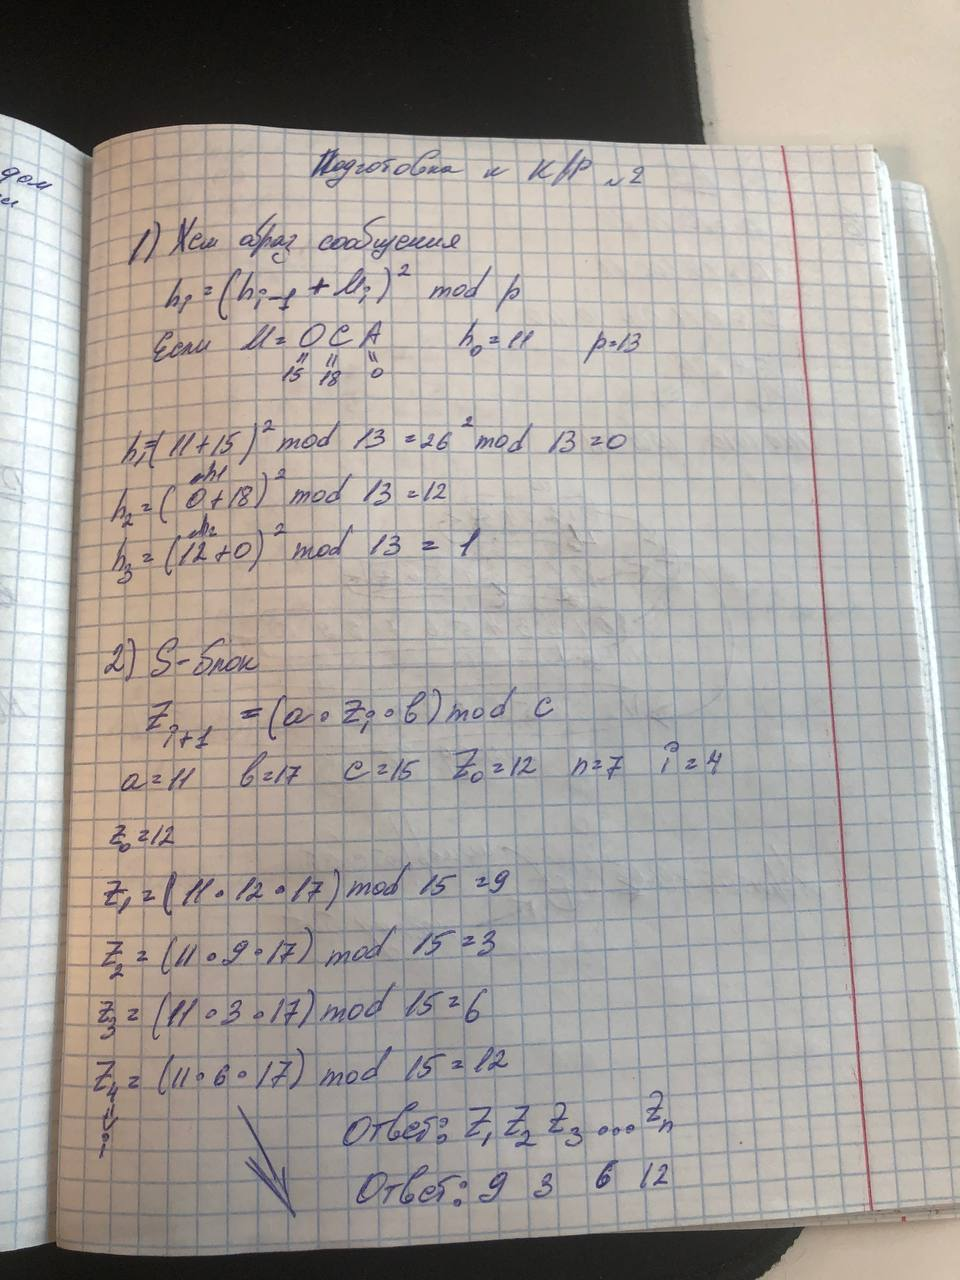 дом
Подготовка к К/Р №2
1) Хеш образ сообщения
hᵢ = (hᵢ₋₁ + Mᵢ)² mod p
Если M = О С А h₀ = 11 p = 13
" " "
15 18 0
h₁ = (11 + 15)² mod 13 = 26² mod 13 = 0
h1
h₂ = (0 + 18)² mod 13 = 12
h₂
h₃ = (12 + 0)² mod 13 = 1
2) S-блок
Zᵢ₊₁ = (a · zᵢ · в) mod c
a = 11 в = 17 c = 15 Z₀ = 12 n = 7 i = 4
z₀ = 12
z₁ = (11 · 12 · 17) mod 15 = 9
Z₂ = (11 · 9 · 17) mod 15 = 3
z₃ = (11 · 3 · 17) mod 15 = 6
Z₄ = (11 · 6 · 17) mod 15 = 12
i
Ответ: Z₁ Z₂ Z₃ ... Zₙ
Ответ: 9 3 6 12